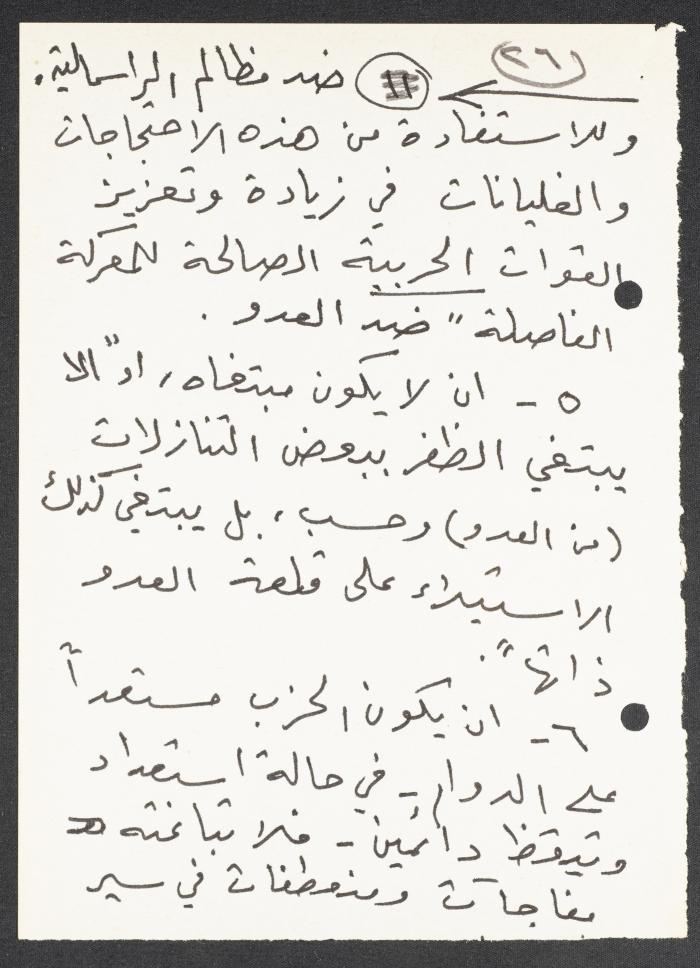 (٢٦)
١١ ضد مظالم الراسمالية.
وللاستفادة من هذه الاحتجاجات
والغليانات في زيادة وتعزيز
القوات الحربية الصالحة للمعركة
الفاصلة" ضد العدو.
٥ - ان لا يكون مبتغاه، او"الا
يبتغي الظفر ببعض التنازلات
(من العدو) وحسب، بل يبتغي كذلك
الاستيلاء على قلعة العدو
ذاتها".
٦- ان يكون الحزب مستعداً
على الدوام - في حالة استعداد
وتيقظ دائمين - فلا تباغته
مفاجآت ومنعطفات في سير